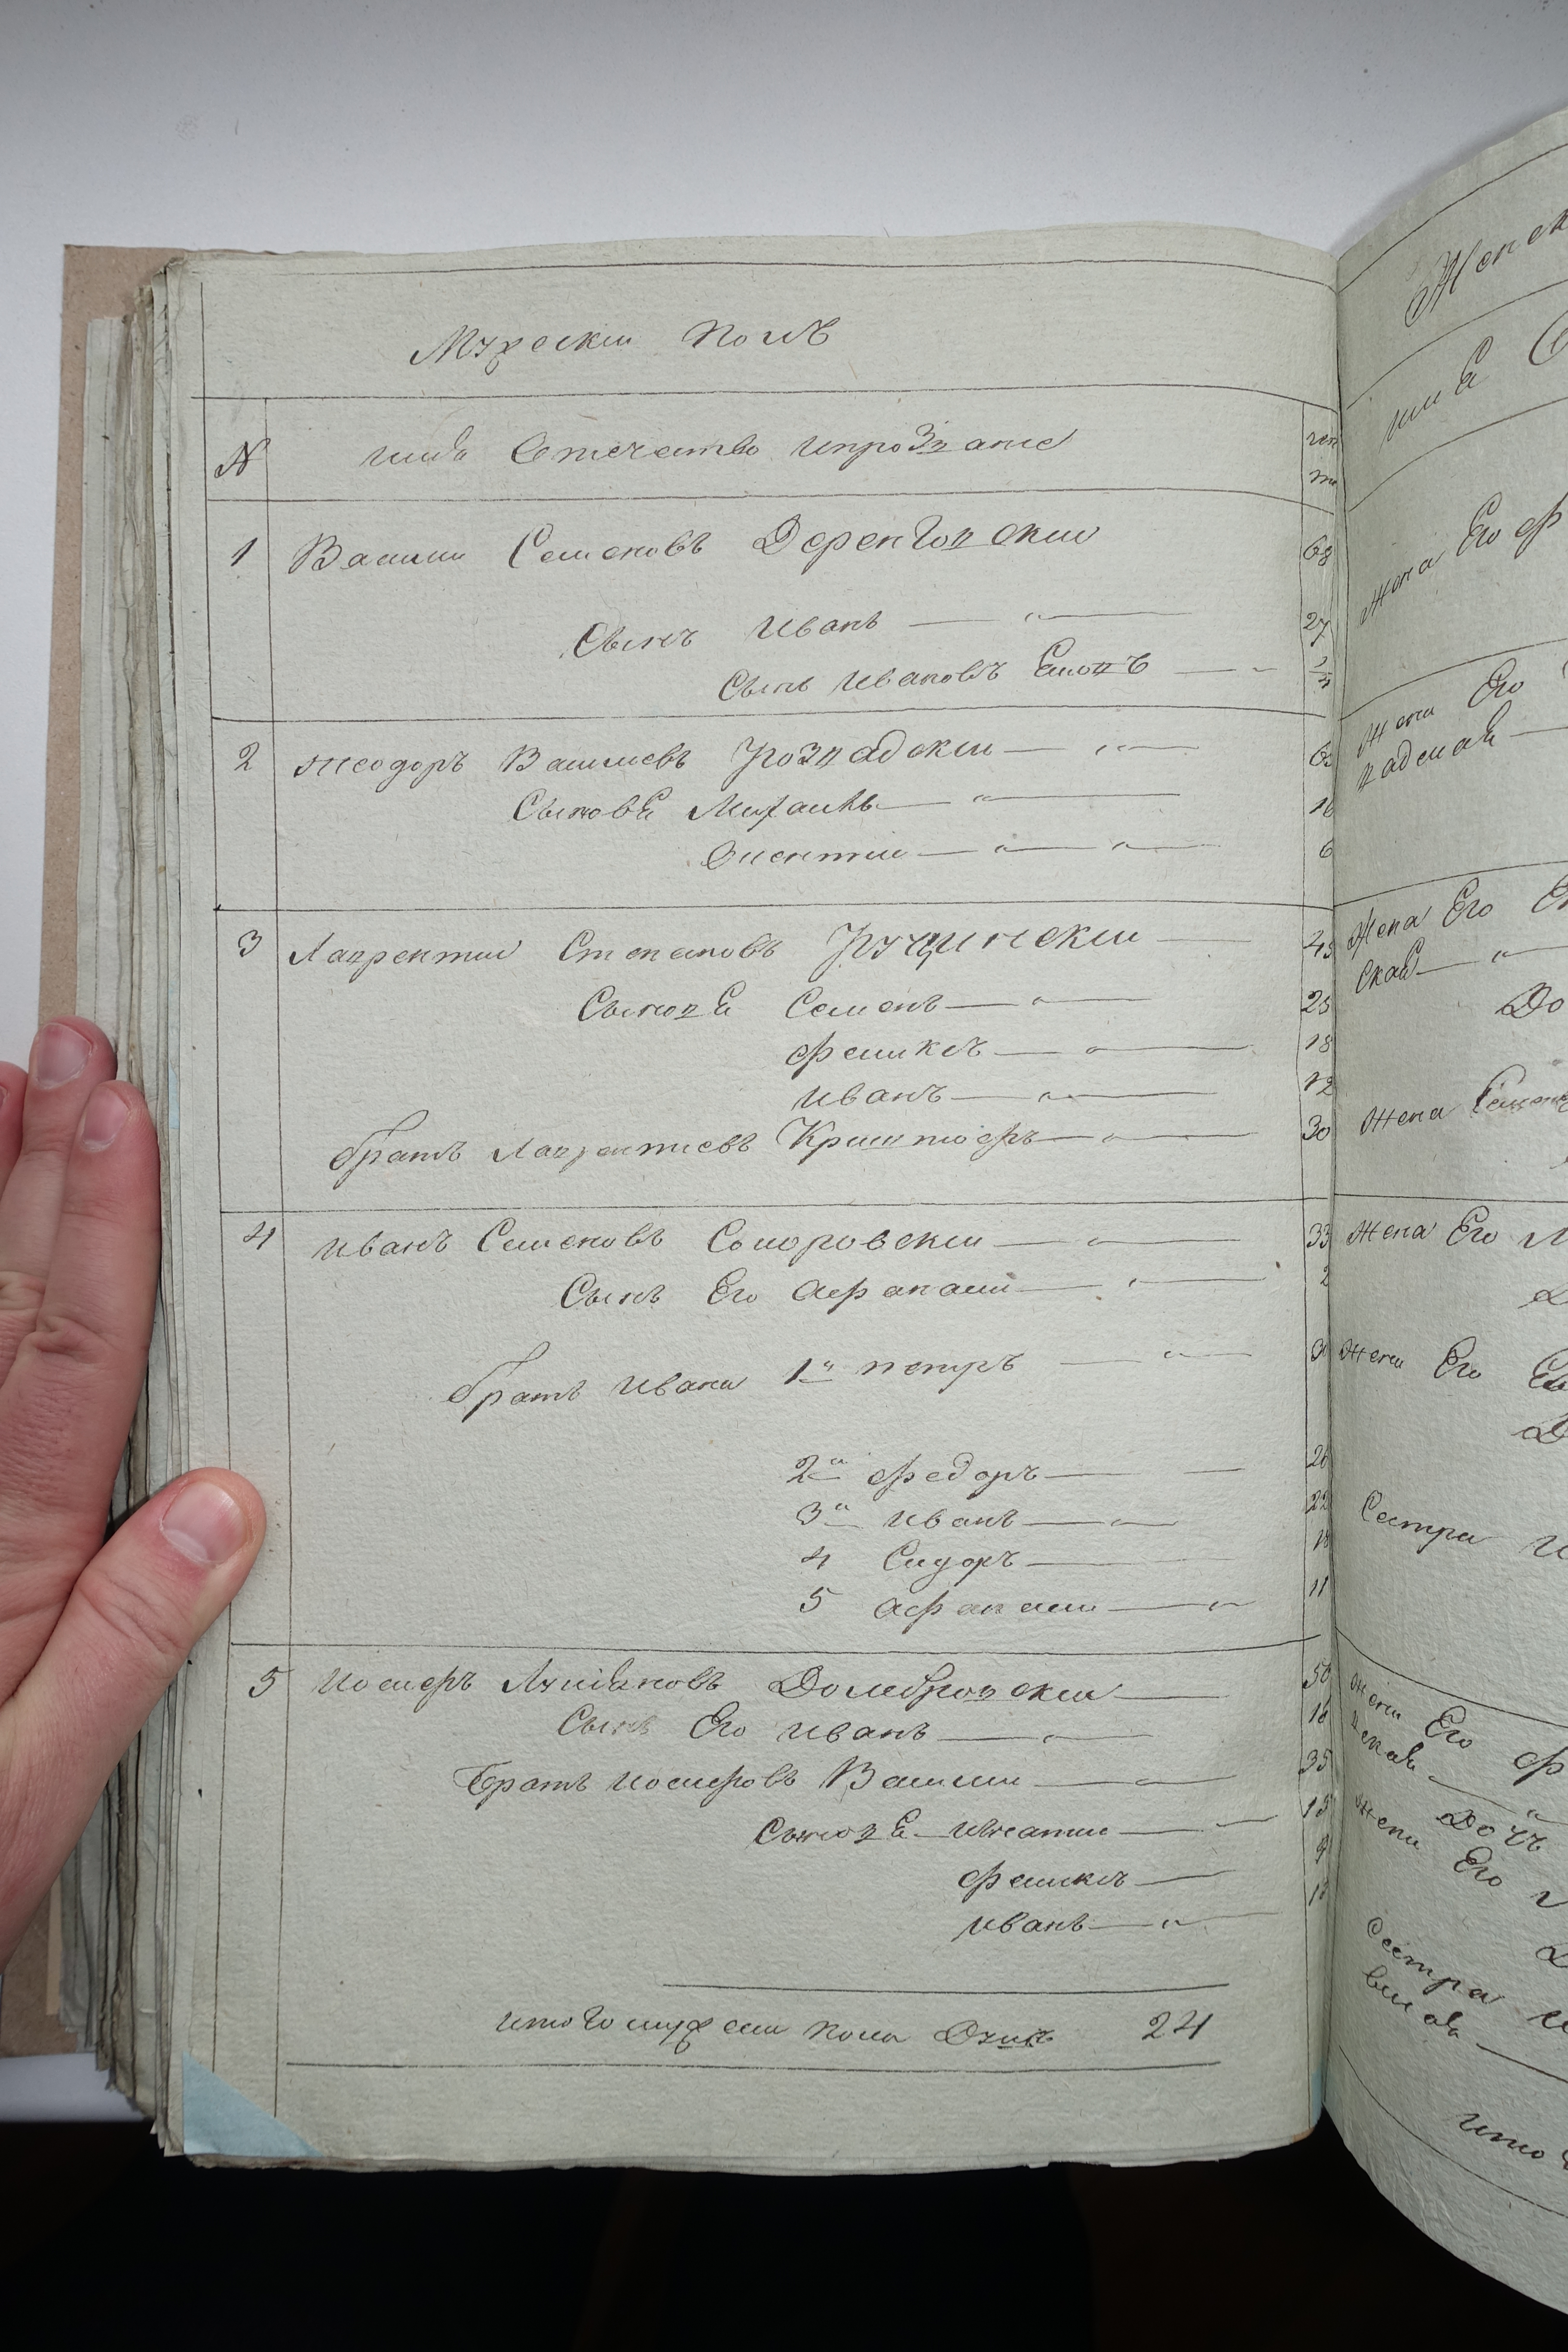 Мужески полъ
N имѧ Отечество ипрозване
1 Васили Семеновъ Деренговски 68
Сынъ Иванъ 27
Сынъ Ивановъ Симонъ
2 Феодоръ Василиевъ Грозвадски
Сыновѣ Михаилъ 16
6
3 Лаврентии Степановъ Гручински 45
Сыновѣ Семенъ 25
Феликсъ 18
Иванъ 12
братъ Лаврентиевъ Криштофъ 30
4 Иванъ Семеновъ Соморовски 33
Сынъ Его Афанаси 2
братъ Ивана 1й петръ
2й Федоръ 26
3й Иванъ 22
4 Сидоръ 18
5 Афанаси 11
5 Иосифъ Домбровски 50
Сынъ Его Иванъ 16
Братъ Иосифовъ Васили 35
Сыновѣ Игнатии 15
Феликсъ 9
Иванъ
итого мужески пола Душъ 24
Женск
Жена Его Ф
Жена Его
Жена Его
ская
До
Жена Семена
Жена Его
Жена Его
Сестра
Жена Его Ф
Дочъ
Жена Его
Сестра
итого